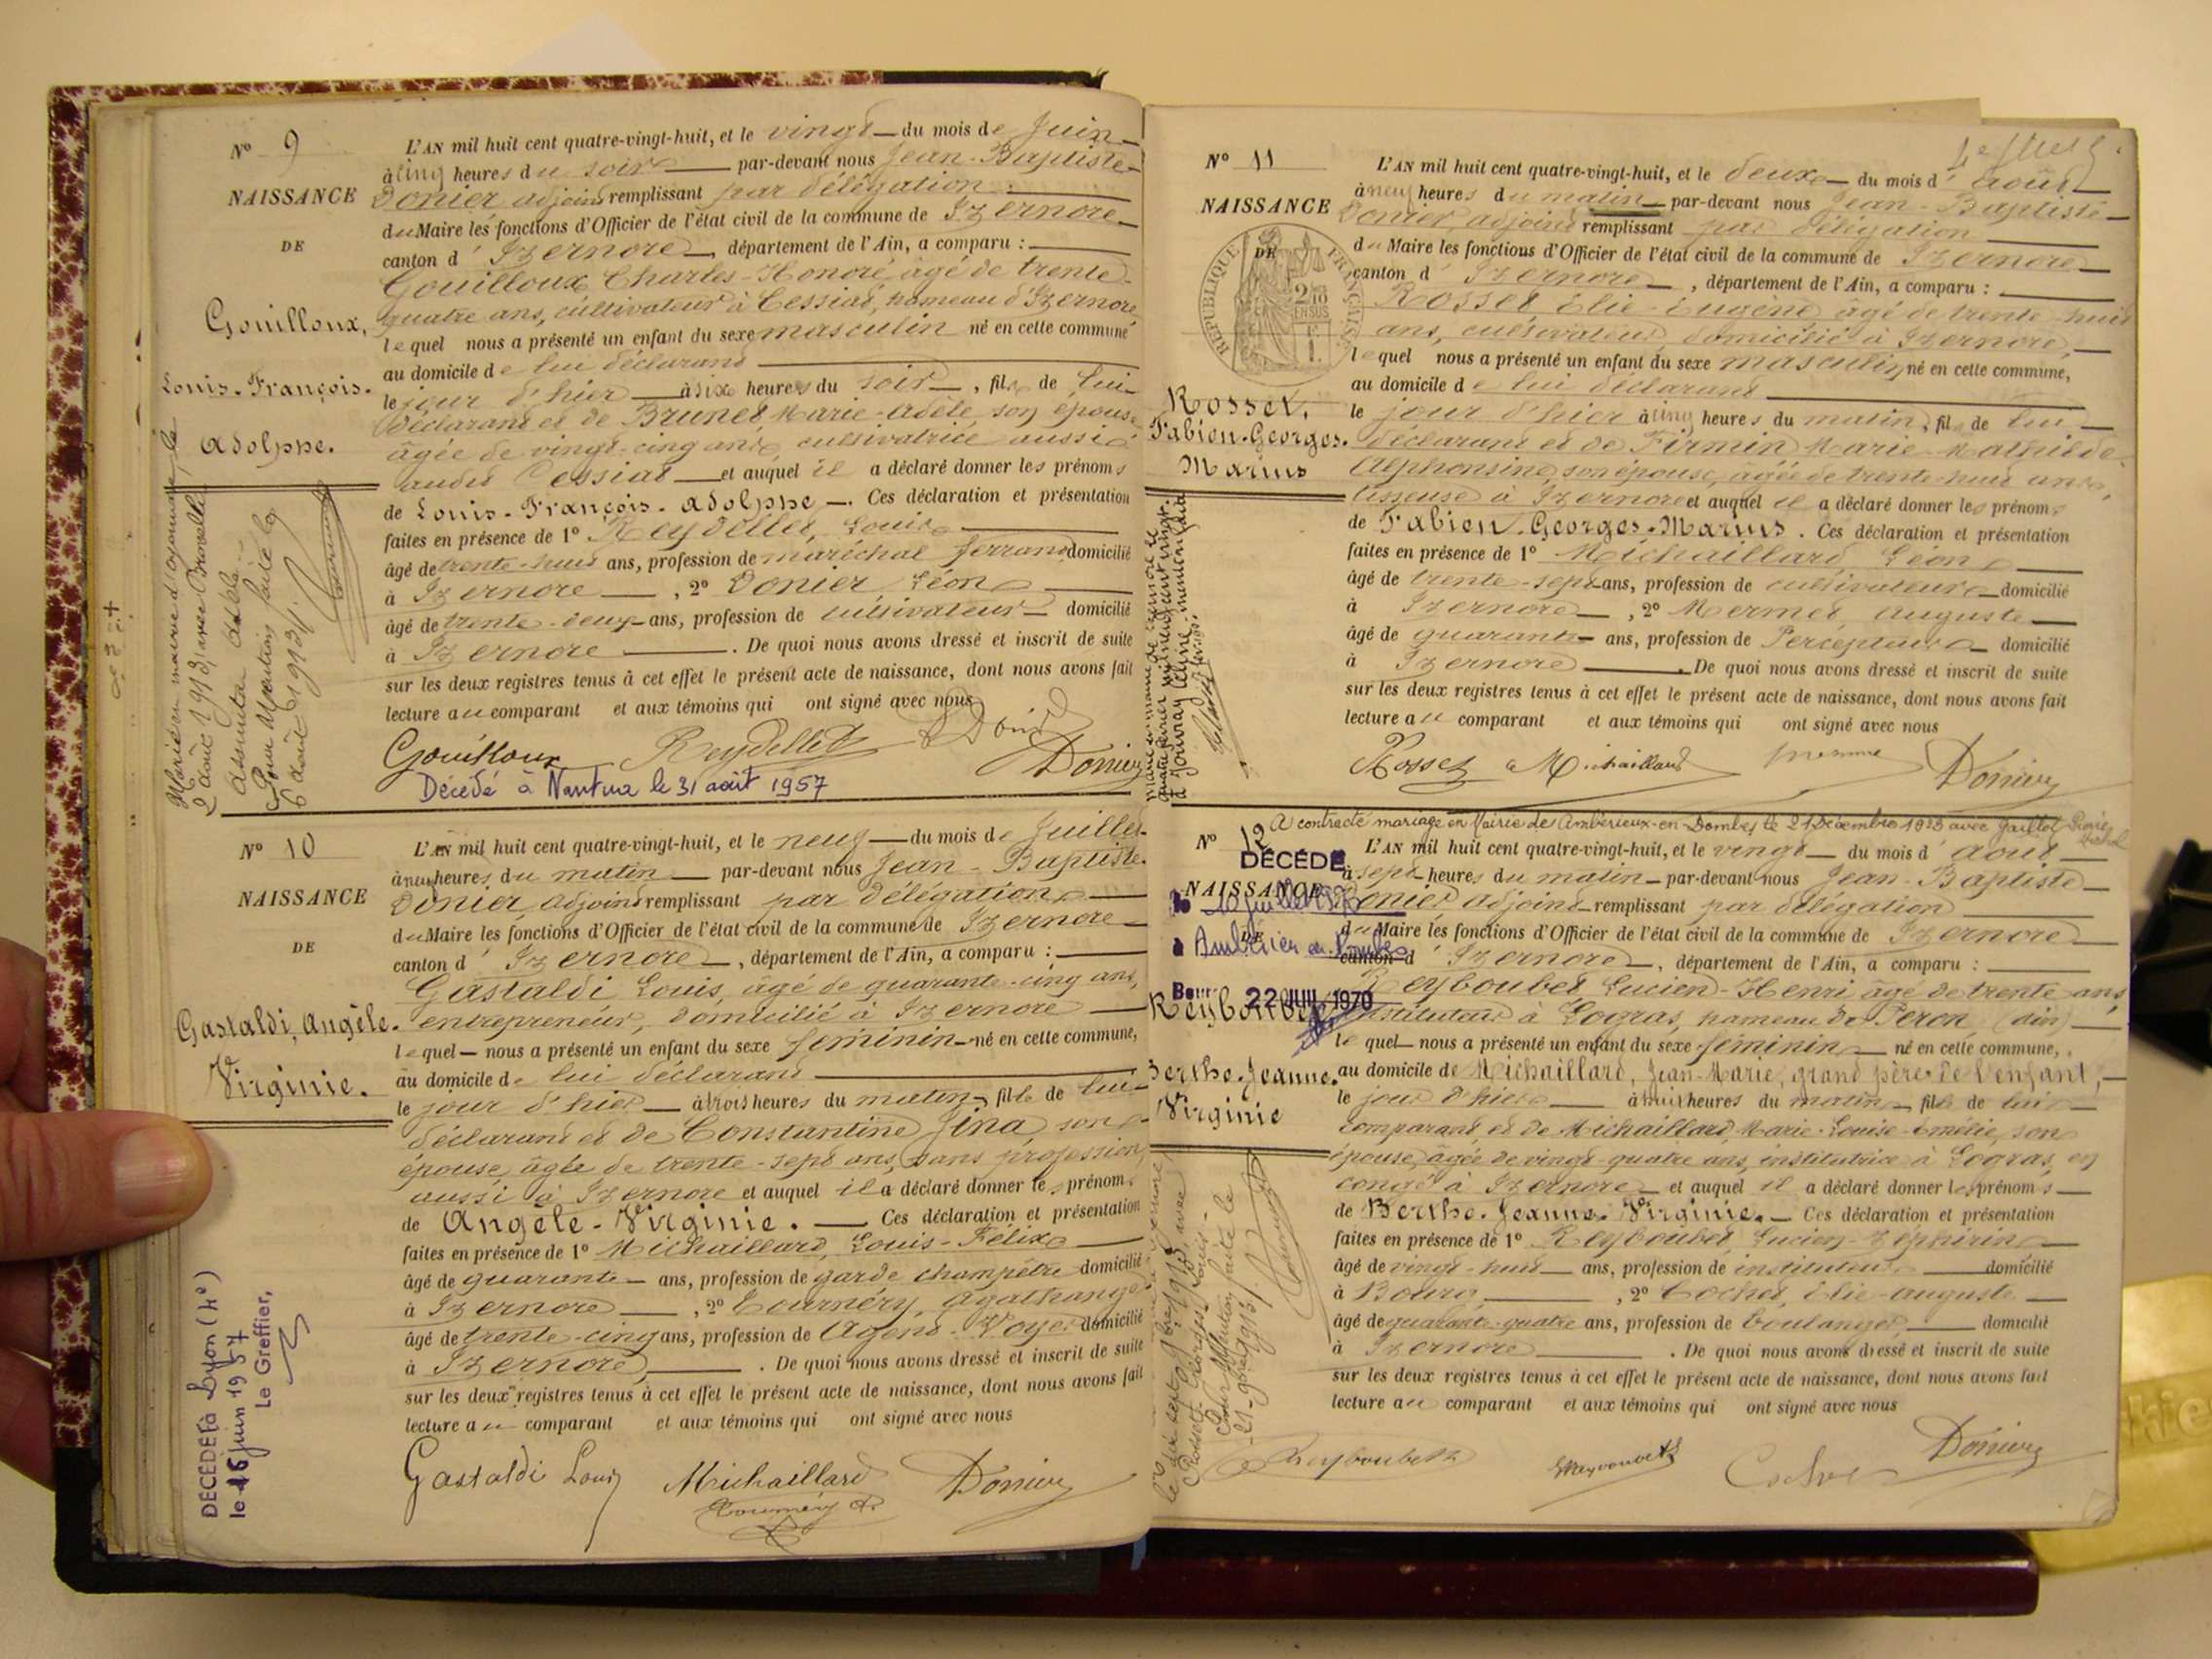 Nº 9
NAISSANCE
DE
Gouilloux,
Louis-François-
Adolphe.
L'AN mil huit cent quatre-vingt-huit, et le vingt du mois de Juin
à cinq heures du soir par-devant nous Jean-Baptiste
Donier adjoint remplissant par délégation
du Maire les fonctions d'Officier de l'état civil de la commune de Izernore
canton d'Izernore, département de l'Ain, a comparu :
Gouilloux Charles-Honoré, âgé de trente
quatre ans, cultivateur à Cessiat, hameau d'Izernore
lequel nous a présenté un enfant du sexe masculin né en cette commune
au domicile de lui déclarant
le jour d'hier à six heures du soir, fils de lui
déclarant et de Brunet Marie-Adèle, son épouse
âgée de vingt-cinq ans, cultivatrice aussi
audit Cessiat et auquel il a déclaré donner les prénoms
de Louis-François-Adolphe. Ces déclaration et présentation
faites en présence de 1º Reydellet, Louis
âgé de trente-huit ans, profession de maréchal ferrant domicilié
à Izernore, 2º Donier Léon
âgé de trente-deux ans, profession de cultivateur domicilié
à Izernore. De quoi nous avons dressé et inscrit de suite
sur les deux registres tenus à cet effet le présent acte de naissance, dont nous avons fait
lecture au comparant et aux témoins qui ont signé avec nous
Gouilloux Reydellet Donier
Donier
Décédé à Nantua le 31 août 1957
Marié en mairie d'Oyonnax, le
2 août 1913, avec
Pour Mention faite le
6 août 1913
Nº 10
NAISSANCE
DE
Gastaldi, Angèle-
Virginie.
L'AN mil huit cent quatre-vingt-huit, et le neuf du mois de Juillet
à neuf heures du matin par-devant nous Jean-Baptiste
Donier, adjoint remplissant par délégation
du Maire les fonctions d'Officier de l'état civil de la commune de Izernore
canton d'Izernore, département de l'Ain, a comparu :
Gastaldi Louis, âgé de quarante-cinq ans,
entrepreneur, domicilié à Izernore
lequel nous a présenté un enfant du sexe féminin né en cette commune,
au domicile de lui déclarant
le jour d'hier à trois heures du matin, fille de lui
déclarant et de Constantine Jina, son
épouse, âgée de trente-sept ans, sans profession,
aussi à Izernore et auquel il a déclaré donner les prénoms
de Angèle-Virginie. Ces déclaration et présentation
faites en présence de 1º Michaillard, Louis-Félix
âgé de quarante ans, profession de garde champêtre domicilié
à Izernore, 2º Tournéry, Agathange
âgé de trente-cinq ans, profession de Agent-Voyer domicilié
à Izernore. De quoi nous avons dressé et inscrit de suite
sur les deux registres tenus à cet effet le présent acte de naissance, dont nous avons fait
lecture au comparant et aux témoins qui ont signé avec nous
Gastaldi Louis Michaillard Donier
Tournéry A.
DÉCÉDÉ à Lyon (4e)
le 16 juin 1957
Le Greffier,
Nº 11
NAISSANCE
DE
RÉPUBLIQUE FRANÇAISE
2/10 EN SUS
Rosset,
Fabien-Georges-
Marius
L'AN mil huit cent quatre-vingt-huit, et le deux du mois d'août
à neuf heures du matin par-devant nous Jean-Baptiste
Donier, adjoint remplissant par délégation
du Maire les fonctions d'Officier de l'état civil de la commune de Izernore
canton d'Izernore, département de l'Ain, a comparu :
Rosset Elie-Eugène âgé de trente-huit
ans, cultivateur, domicilié à Izernore,
lequel nous a présenté un enfant du sexe masculin né en cette commune,
au domicile de lui déclarant
le jour d'hier à cinq heures du matin, fils de lui
déclarant et de Firmin Marie-Mathilde-
Alphonsine, son épouse, âgée de trente-huit ans,
tisseuse à Izernore et auquel il a déclaré donner les prénoms
de Fabien-Georges-Marius. Ces déclaration et présentation
faites en présence de 1º Michaillard, Léon
âgé de trente-sept ans, profession de cultivateur domicilié
à Izernore, 2º Mermet, Auguste
âgé de quarante ans, profession de Percepteur domicilié
à Izernore. De quoi nous avons dressé et inscrit de suite
sur les deux registres tenus à cet effet le présent acte de naissance, dont nous avons fait
lecture au comparant et aux témoins qui ont signé avec nous
Rosset Michaillard Donier
Nº 12
A contracté mariage en Mairie de Ambérieux-en-Dombes le 21 Décembre 1923 avec Gaillot
DÉCÉDÉ
NAISSANCE
DE
le 10 juillet 1970
à Ambérieux en Dombes
Bourg 22 JUIL 1970
Reyboubet
Berthe-Jeanne-
Virginie
L'AN mil huit cent quatre-vingt-huit, et le vingt du mois d'août
à sept heures du matin par-devant nous Jean-Baptiste
Donier adjoint remplissant par délégation
du Maire les fonctions d'Officier de l'état civil de la commune de Izernore
canton d'Izernore, département de l'Ain, a comparu :
Reyboubet Lucien-Henri âgé de trente ans,
instituteur à Logras, hameau de Peron (Ain)
lequel nous a présenté un enfant du sexe féminin né en cette commune,
au domicile de Michaillard, Jean-Marie, grand père de l'enfant,
le jour d'hier à huit heures du matin, fille de lui
comparant et de Michaillard, Marie-Louise-Emélie, son
épouse, âgée de vingt-quatre ans, institutrice à Logras, en
congé à Izernore et auquel il a déclaré donner les prénoms
de Berthe-Jeanne-Virginie. Ces déclaration et présentation
faites en présence de 1º Reyboubet, Lucien-Zéphirin
âgé de vingt-huit ans, profession de instituteur domicilié
à Bourg, 2º Cochet, Elie-Auguste
âgé de quarante-quatre ans, profession de boulanger domicilié
à Izernore. De quoi nous avons dressé et inscrit de suite
sur les deux registres tenus à cet effet le présent acte de naissance, dont nous avons fait
lecture au comparant et aux témoins qui ont signé avec nous
Reyboubet Reyboubet Cochet Donier